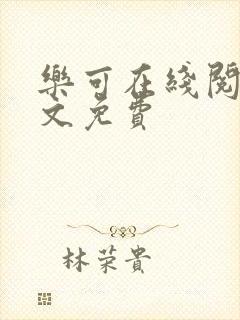 樂可在綫閱
文免費
林荣貴